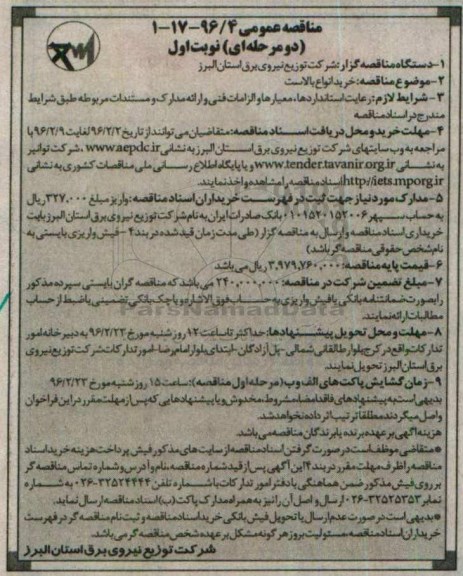 مناقصه عمومی ۹۶/۴-۱۷-۱
(دو مرحله‌ای) نوبت اول
۱-دستگاه مناقصه گزار: شرکت توزیع نیروی برق استان البرز
۲-موضوع مناقصه: خرید انواع بالاست
۳- شرایط لازم: رعایت استانداردها، معیارها و الزامات فنی و ارائه مدارک و مستندات مربوطه طبق شرایط
مندرج در اسناد مناقصه
۴-مهلت خرید و محل دریافت اسناد مناقصه: متقاضیان می توانند از تاریخ ۹۶/۲/۲ لغایت ۹۶/۲/۹ با
مراجعه به وب سایتهای شرکت توزیع نیروی برق استان البرز به نشانی www.aepdc.ir، شرکت توانیر
به نشانی www.tender.tavanir.org.ir و یا پایگاه اطلاع رسانی ملی مناقصات کشوری به نشانی
http://iets.mporg.ir اسناد مناقصه را مشاهده و اخذ نمایند.
۵- مدارک مورد نیاز جهت ثبت در فهرست خریداران اسناد مناقصه: واریز مبلغ ۳۲۷,۰۰۰ ریال
به حساب سپهر ۰۱۰۱۵۲۰۱۵۲۰۰۶ بانک صادرات ایران به نام شرکت توزیع نیروی برق استان البرز بابت
خریداری اسناد مناقصه و ارسال به مناقصه گزار (طی مدت زمان قید شده در بند ۴ - فیش واریزی بایستی به
نام شخص حقوقی مناقصه گر باشد)
۶-قیمت پایه مناقصه: ۳,۹۷۹,۷۶۰,۰۰۰ ریال می باشد
۷-مبلغ تضمین شرکت در مناقصه: ۲۴۰,۰۰۰,۰۰۰ می باشد که مناقصه گران بایستی سپرده مذکور
را بصورت ضمانتنامه بانکی یا فیش واریزی به حساب فوق الاشاره و یا چک بانکی تضمینی یا ضبط از حساب
مطالبات ارائه نمایند.
۸-مهلت و محل تحویل پیشنهادها: حداکثر تا ساعت ۱۲ روز شنبه مورخ ۹۶/۲/۲۳ به دبیرخانه امور
تدارکات واقع در کرج بلوار طالقانی شمالی - پل آزادگان - ابتدای بلوار امام رضا - امور تدارکات شرکت توزیع نیروی
برق استان البرز تحویل نمایند.
۹-زمان گشایش پاکت های الف و ب (مرحله اول مناقصه): ساعت ۱۵ روز شنبه مورخ ۹۶/۲/۲۳
بدیهی است به پیشنهادهای فاقد امضا، مشروط، مخدوش و یا پیشنهادهایی که پس از مهلت مقرر در این فراخوان
واصل میگردند مطلقاً ترتیب اثر داده نخواهد شد.
هزینه آگهی بر عهده برنده یا برندگان مناقصه می باشد.
*متقاضی موظف است در صورت گرفتن اسناد مناقصه از سایت های مذکور فیش پرداخت هزینه خرید اسناد
مناقصه را ظرف مهلت مقرر در بند ۴ این آگهی پس از قید شماره مناقصه، نام و آدرس و شماره تماس مناقصه گر
بر روی فیش مذکور ضمن هماهنگی با دفتر امور تدارکات با شماره تلفن ۳۲۵۲۴۴۴۴-۰۲۶ به شماره
نمابر ۳۲۵۲۵۳۵۳-۰۲۶ ارسال و اصل آن را نیز به همراه مدارک پاکت (ب) اسناد مناقصه ارسال نماید.
*بدیهی است در صورت عدم ارسال یا تحویل فیش بانکی خرید اسناد مناقصه و ثبت نام مناقصه گر در فهرست
خریداران اسناد مناقصه مسئولیت بروز هر گونه مشکل بر عهده شخص مناقصه گر می باشد.
شرکت توزیع نیروی برق استان البرز
ParsNamadData